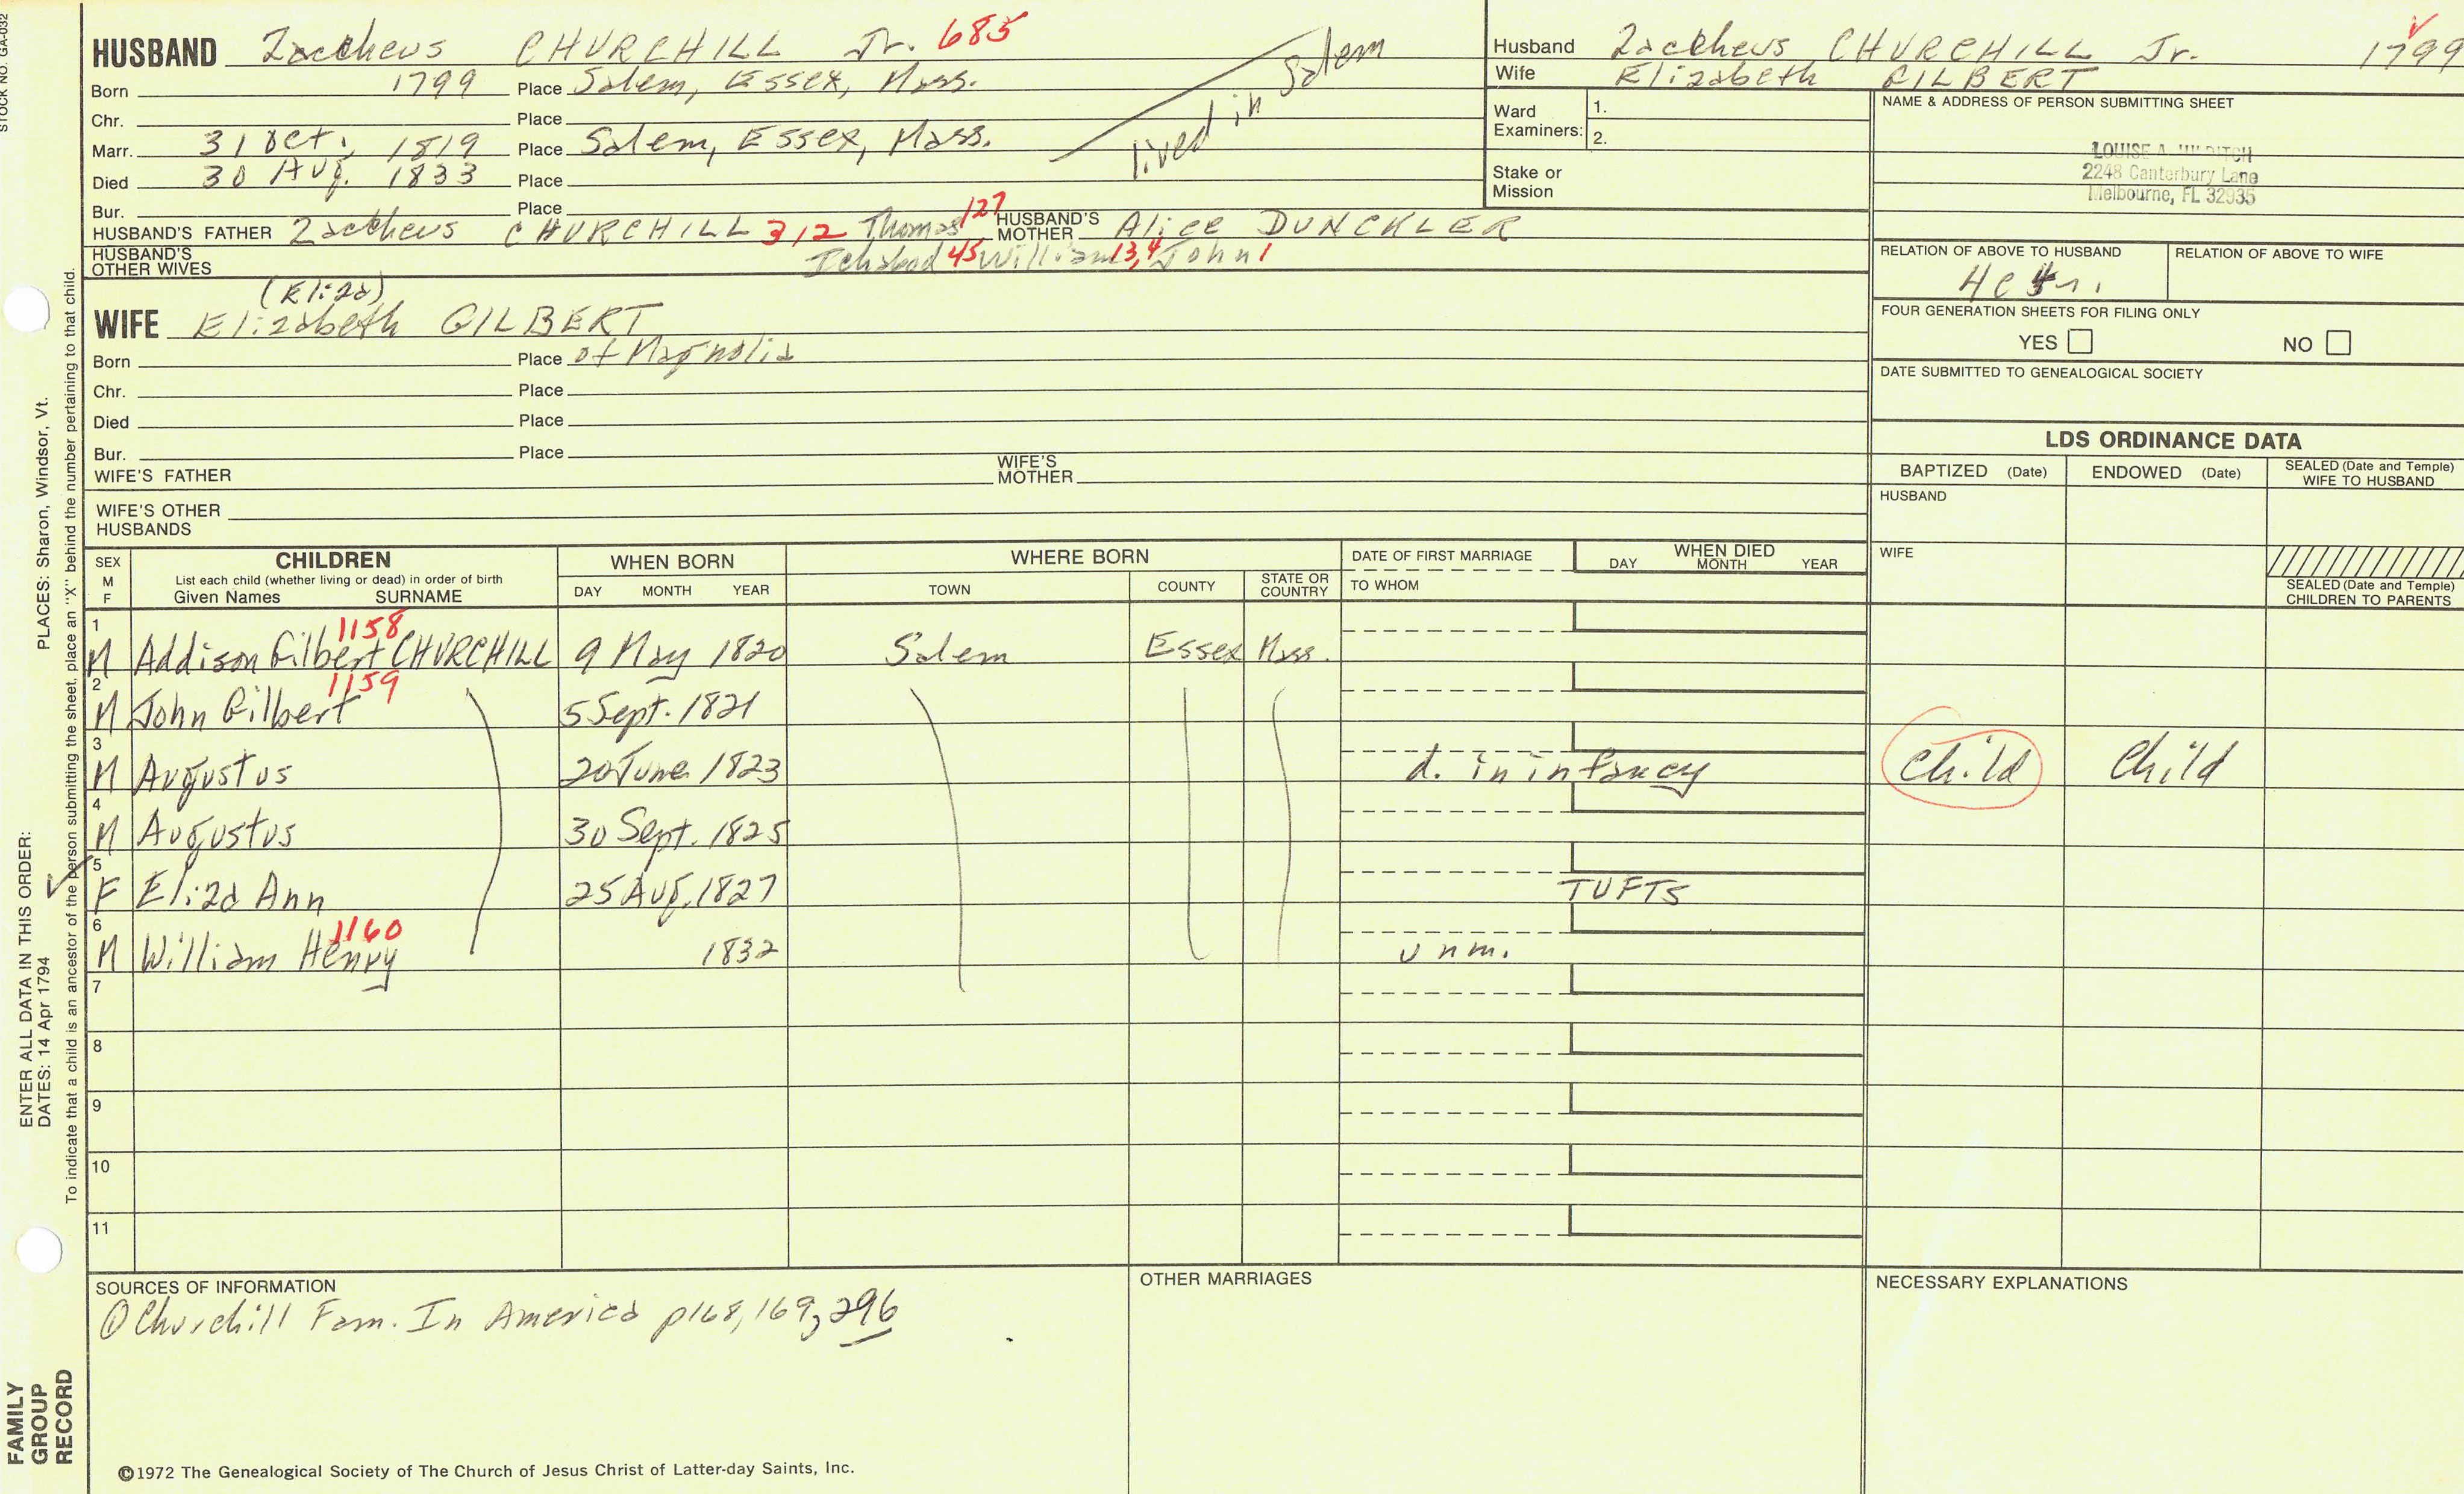 STOCK NO. GA-032
HUSBAND Zaccheus CHURCHILL Jr. 685
Born 1799 Place Salem, Essex, Mass.
Chr. Place
Marr. 31 Oct. 1819 Place Salem, Essex, Mass.
Died 30 Aug. 1833 Place
Bur. Place
lived in Salem
HUSBAND'S FATHER Zaccheus CHURCHILL 312 Thomas 127 HUSBAND'S MOTHER Alice DUNCKLER
HUSBAND'S OTHER WIVES Ichabod 45 William 13,4 John 1
(Eliza)
WIFE Elizabeth GILBERT
Born Place of Magnolia
Chr. Place
Died Place
Bur. Place
WIFE'S FATHER WIFE'S MOTHER
WIFE'S OTHER HUSBANDS
Husband Zaccheus CHURCHILL Jr. 1799
Wife Elizabeth GILBERT
Ward Examiners: 1.
2.
Stake or Mission
NAME & ADDRESS OF PERSON SUBMITTING SHEET
LOUISE A.
2248 Canterbury Lane
Melbourne, FL 32935
RELATION OF ABOVE TO HUSBAND RELATION OF ABOVE TO WIFE
FOUR GENERATION SHEETS FOR FILING ONLY
YES NO
DATE SUBMITTED TO GENEALOGICAL SOCIETY
LDS ORDINANCE DATA
BAPTIZED (Date) ENDOWED (Date) SEALED (Date and Temple) WIFE TO HUSBAND
HUSBAND
WIFE
SEALED (Date and Temple) CHILDREN TO PARENTS
SEX M F CHILDREN WHEN BORN WHERE BORN DATE OF FIRST MARRIAGE WHEN DIED
List each child (whether living or dead) in order of birth
Given Names SURNAME DAY MONTH YEAR TOWN COUNTY STATE OR COUNTRY TO WHOM DAY MONTH YEAR
1 M Addison Gilbert 1158 CHURCHILL 9 May 1820 Salem Essex Mass.
2 M John Gilbert 1159 5 Sept. 1821
3 M Augustus 20 June 1823 d. in infancy Child Child
4 M Augustus 30 Sept. 1825
5 F Eliza Ann 25 Aug. 1827 TUFTS
6 M William Henry 1160 1832 unm.
7
8
9
10
11
SOURCES OF INFORMATION
① Churchill Fam. In America p168, 169, 296
OTHER MARRIAGES
NECESSARY EXPLANATIONS
©1972 The Genealogical Society of The Church of Jesus Christ of Latter-day Saints, Inc.
ENTER ALL DATA IN THIS ORDER:
DATES: 14 Apr 1794 PLACES: Sharon, Windsor, Vt.
To indicate that a child is an ancestor of the person submitting the sheet, place an "X" behind the number pertaining to that child.
FAMILY
GROUP
RECORD